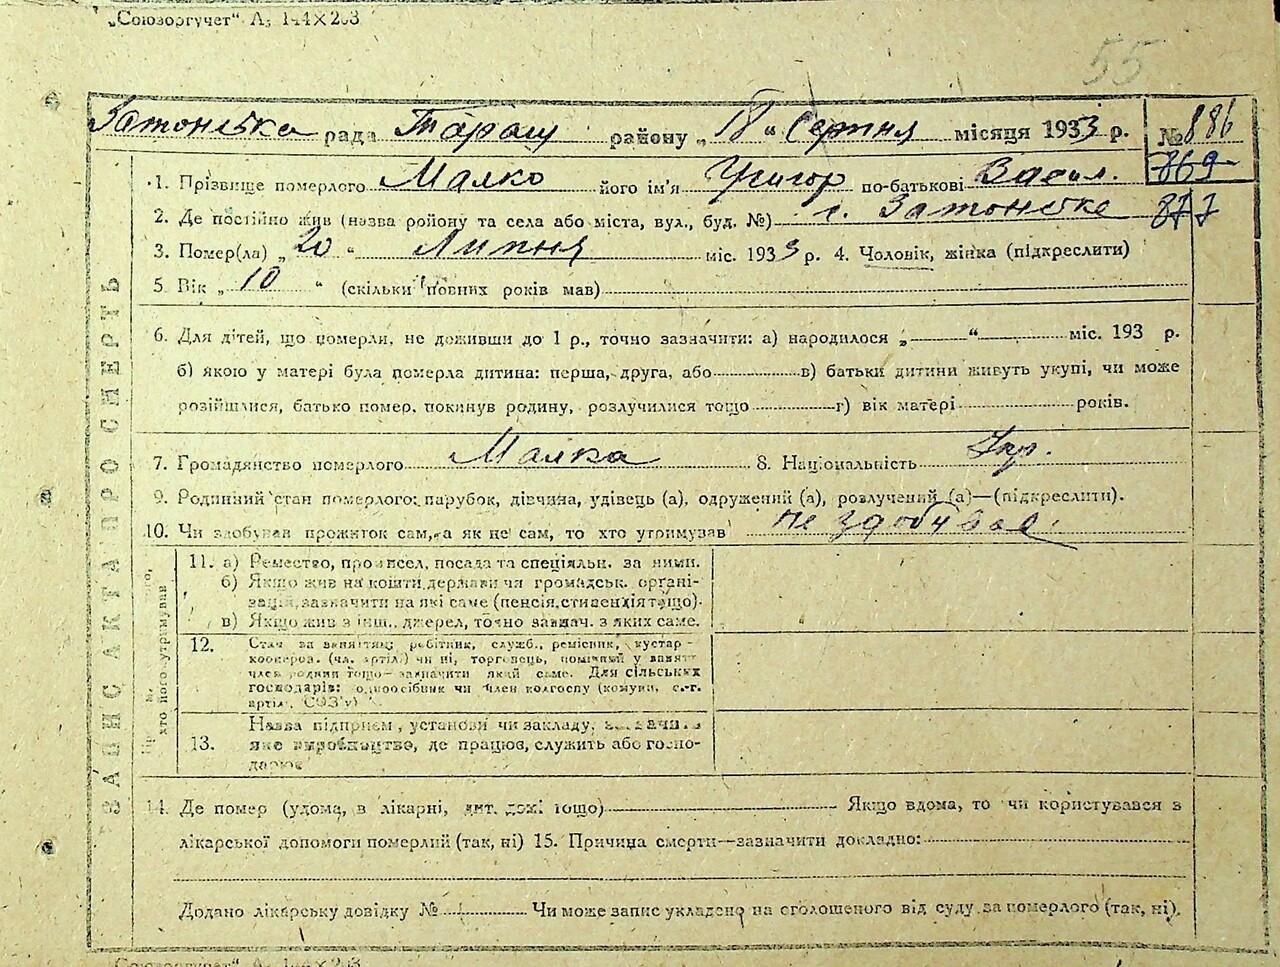 „Союзоргучет“ А5 144×203
55
Затонська рада Таращ району „18“ Серпня місяця 1933 р. № 886
1. Прізвище померлого Малко його ім'я Григор по-батькові Васил. 869
2. Де постійно жив (назва ройону та села або міста, вул., буд. №) с. Затонське 877
3. Помер(ла) „20“ Липня міс. 1933 р. 4. Чоловік, жінка (підкреслити)
5. Вік „10“ (скільки повних років мав)
6. Для дітей, що померли, не доживши до 1 р., точно зазначити: а) народилося „ “ міс. 193 р.
б) якою у матері була померла дитина: перша, друга, або в) батьки дитини живуть укупі, чи може
розійшлися, батько помер, покинув родину, розлучилися тощо г) вік матері років.
7. Громадянство померлого Малка 8. Національність Укр.
9. Родинний стан померлого: парубок, дівчина, удівець (а), одружений (а), розлучений (а)—(підкреслити).
10. Чи здобував прожиток сам, а як не сам, то хто утримував не здобував
11. а) Ремество, промисел, посада та спеціяльн. за ними.
б) Якщо жив на кошти держави чи громадськ. органі-
зацій, зазначити на які саме (пенсія, стипендія тощо).
в) Якщо жив з інш. джерел, точно зазнач. з яких саме.
12. Стан за заняттям: робітник, служб., ремісник, кустар
кооперов. (чл. артілі) чи ні, торговець, помічний у занят
член родини тощо—зазначити який саме. Для сільських
господарів: одноосібник чи член колгоспу (комуни, с.-г.
артілі, СОЗ'у)
13. Назва підприєм., установи чи закладу, зазначить
яке виробництво, де працює, служить або госпо-
дарює
хто його утримував
ЗАПИС АКТА ПРО СМЕРТЬ
14. Де помер (удома, в лікарні, дит. домі тощо) Якщо вдома, то чи користувався з
лікарської допомоги померлий (так, ні) 15. Причина смерти—зазначити докладно:
Додано лікарську довідку № Чи може запис укладено на оголошеного від суду за померлого (так, ні).
„Союзоргучет“ А5 144×203